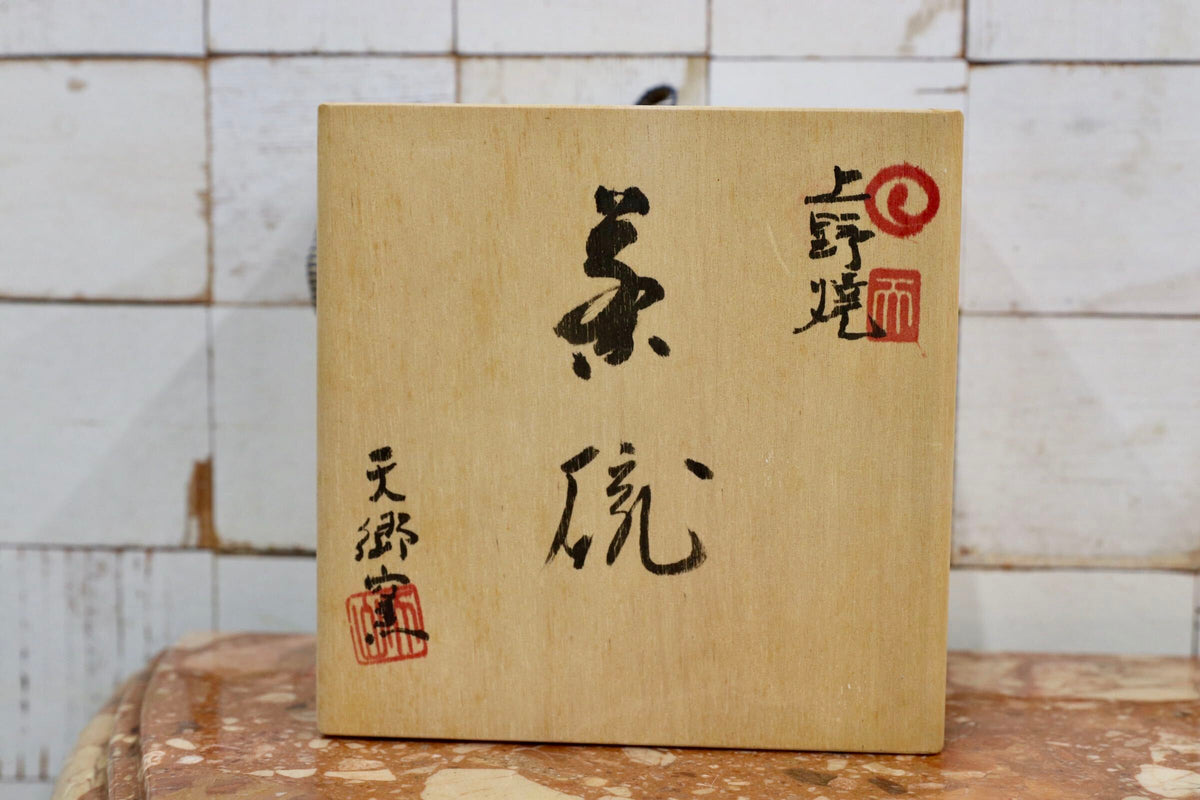 上野焼
茶碗
天郷窯